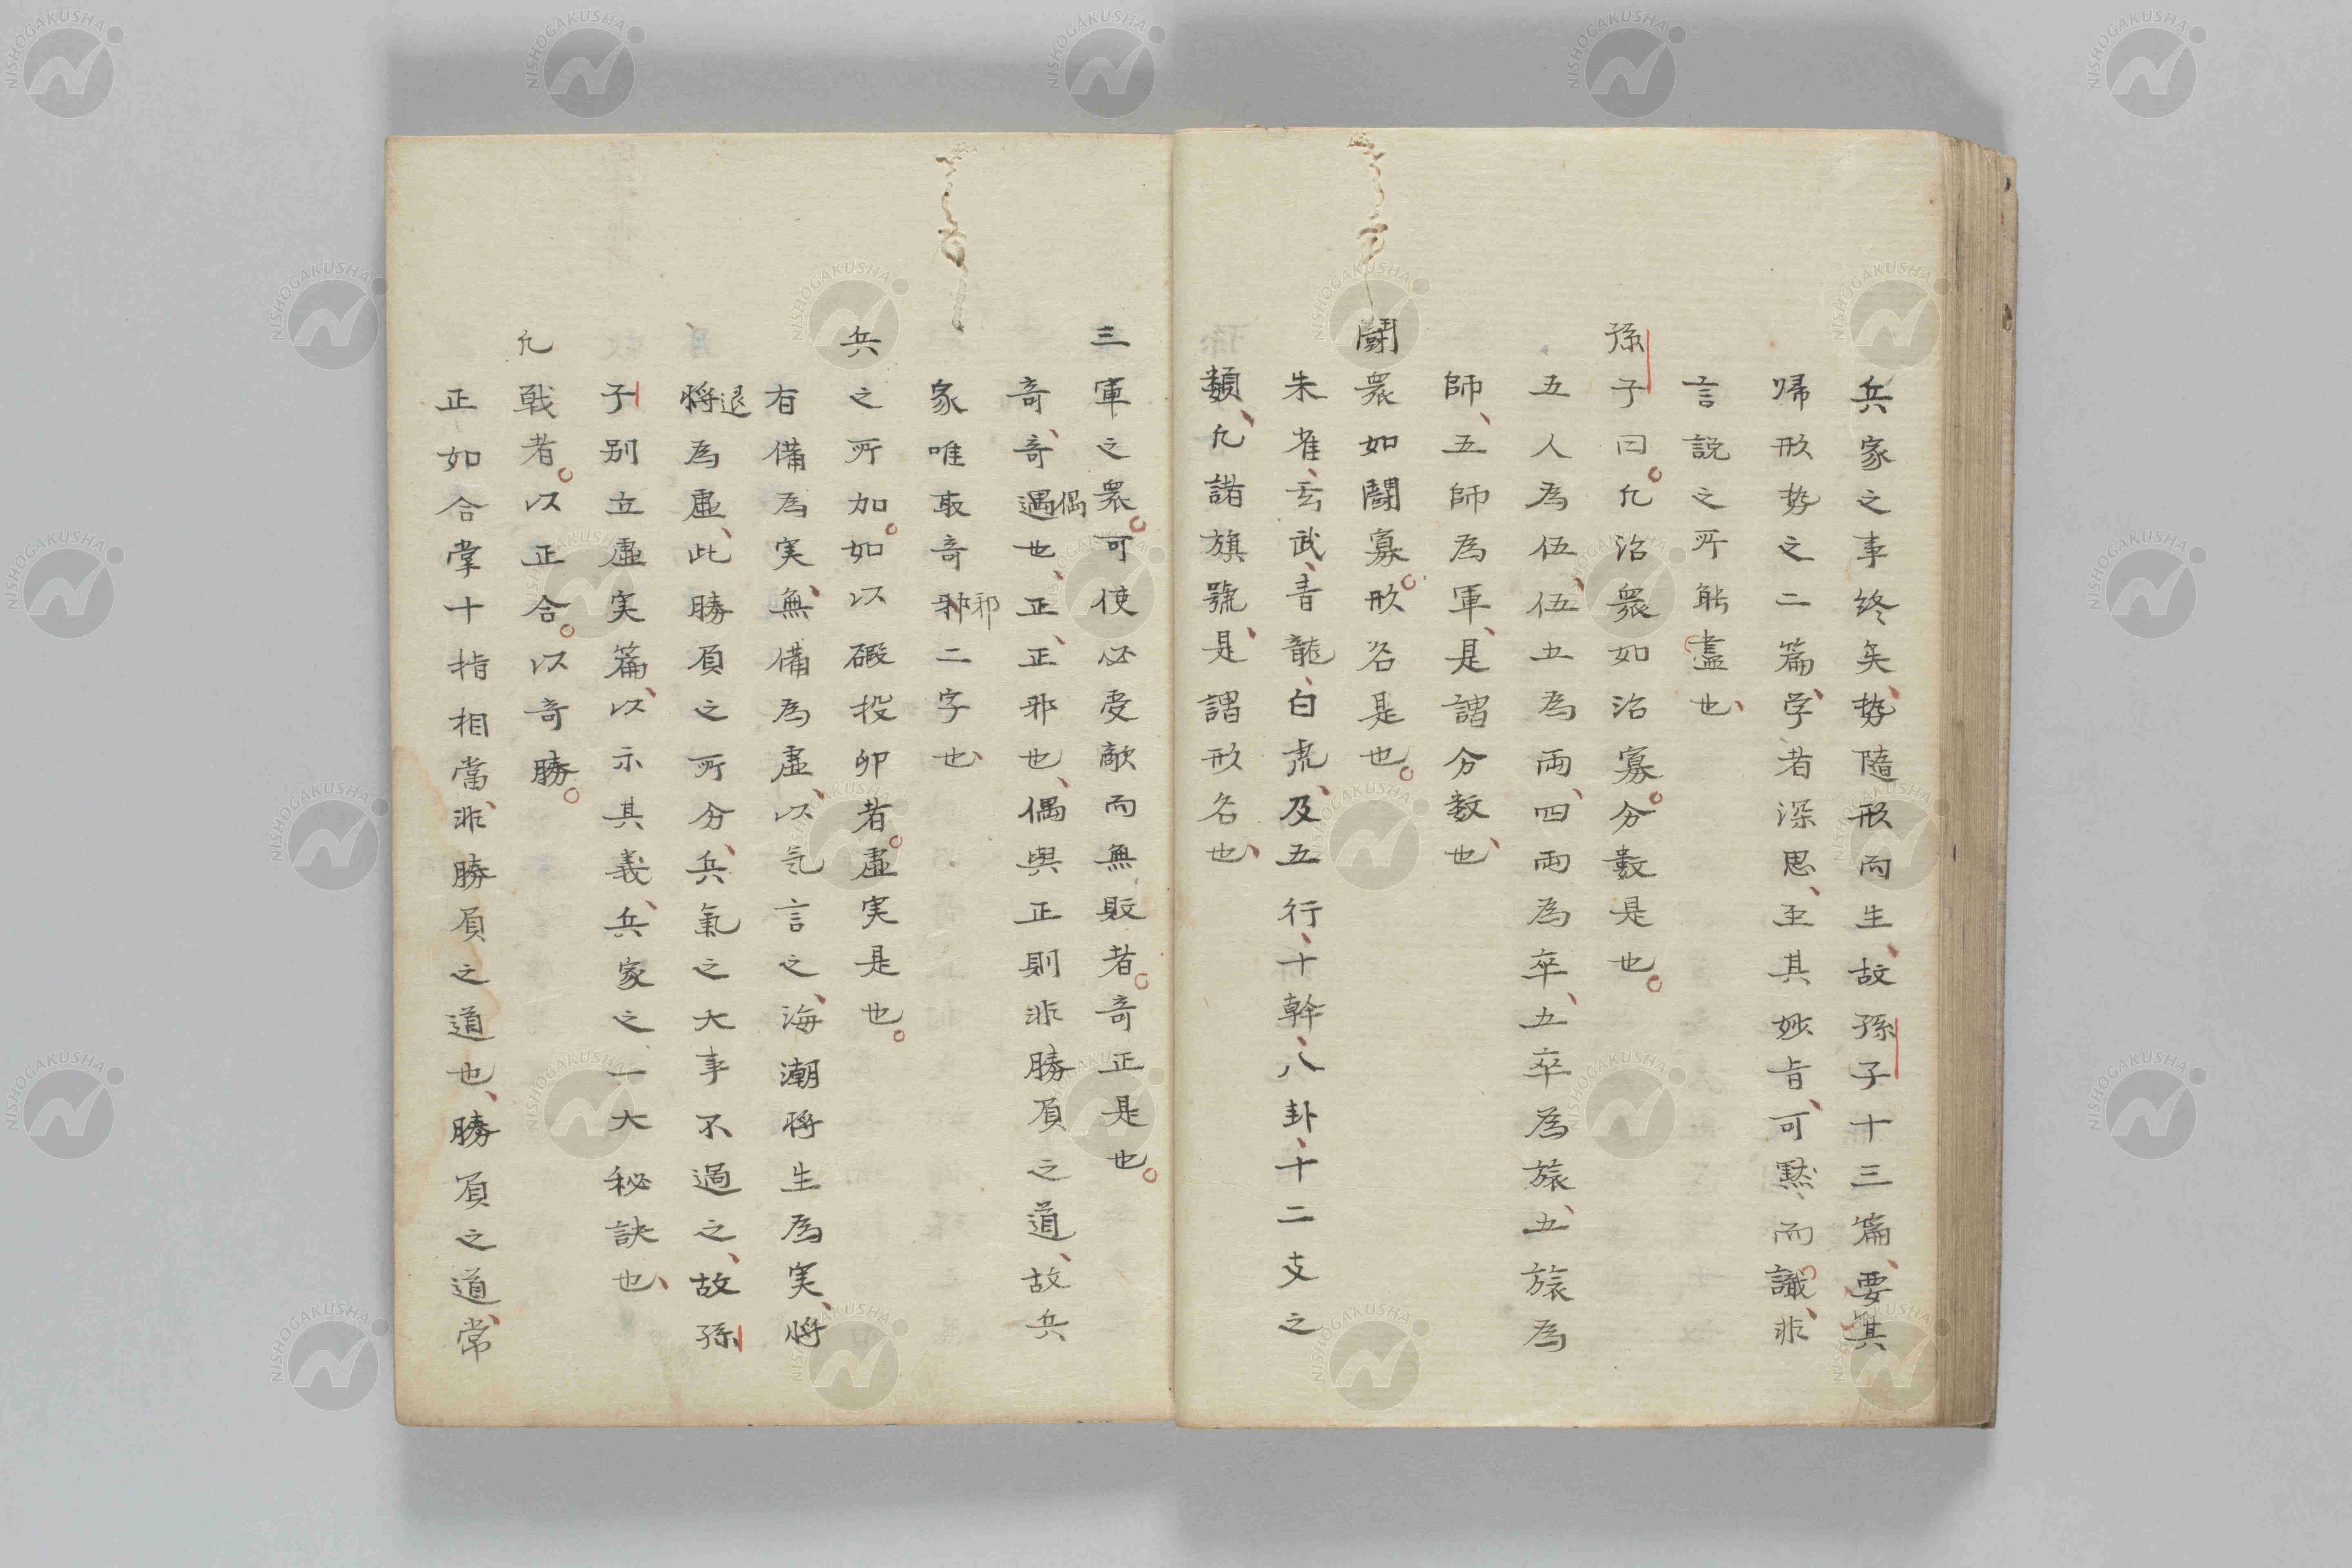 兵家之事終矣、勢隨形而生、故孫子十三篇、要其
帰形勢之二篇、学者深思、至其妙旨、可黙而識、非
言説之所能盡也、
孫子曰。凡治衆如治寡。分數是也。
五人為伍、伍五為両、四両為卒、五卒為旅、五旅為
師、五師為軍、是謂分数也、
闘衆如闘寡。形名是也。
朱雀、玄武、青龍、白虎、及五行、十幹、八卦、十二支之
類、凡諸旗號、是謂形名也、
三軍之衆。可使必受敵而無敗者。奇正是也。
奇、奇遇偶也、正、正邪也、偶與正則非勝負之道、故兵
家唯取奇邪邪二字也、
兵之所加。如以碬投卵者。虚実是也。
有備為実、無備為虚、以気言之、海潮将生為実、将
将退為虚、此勝負之所分、兵氣之大事不過之、故孫
子別立虚実篇、以示其義、兵家之一大秘訣也、
凡戦者。以正合。以奇勝。
正如合掌十指相當、非勝負之道也、勝負之道、常
NISHOGAKUSHA